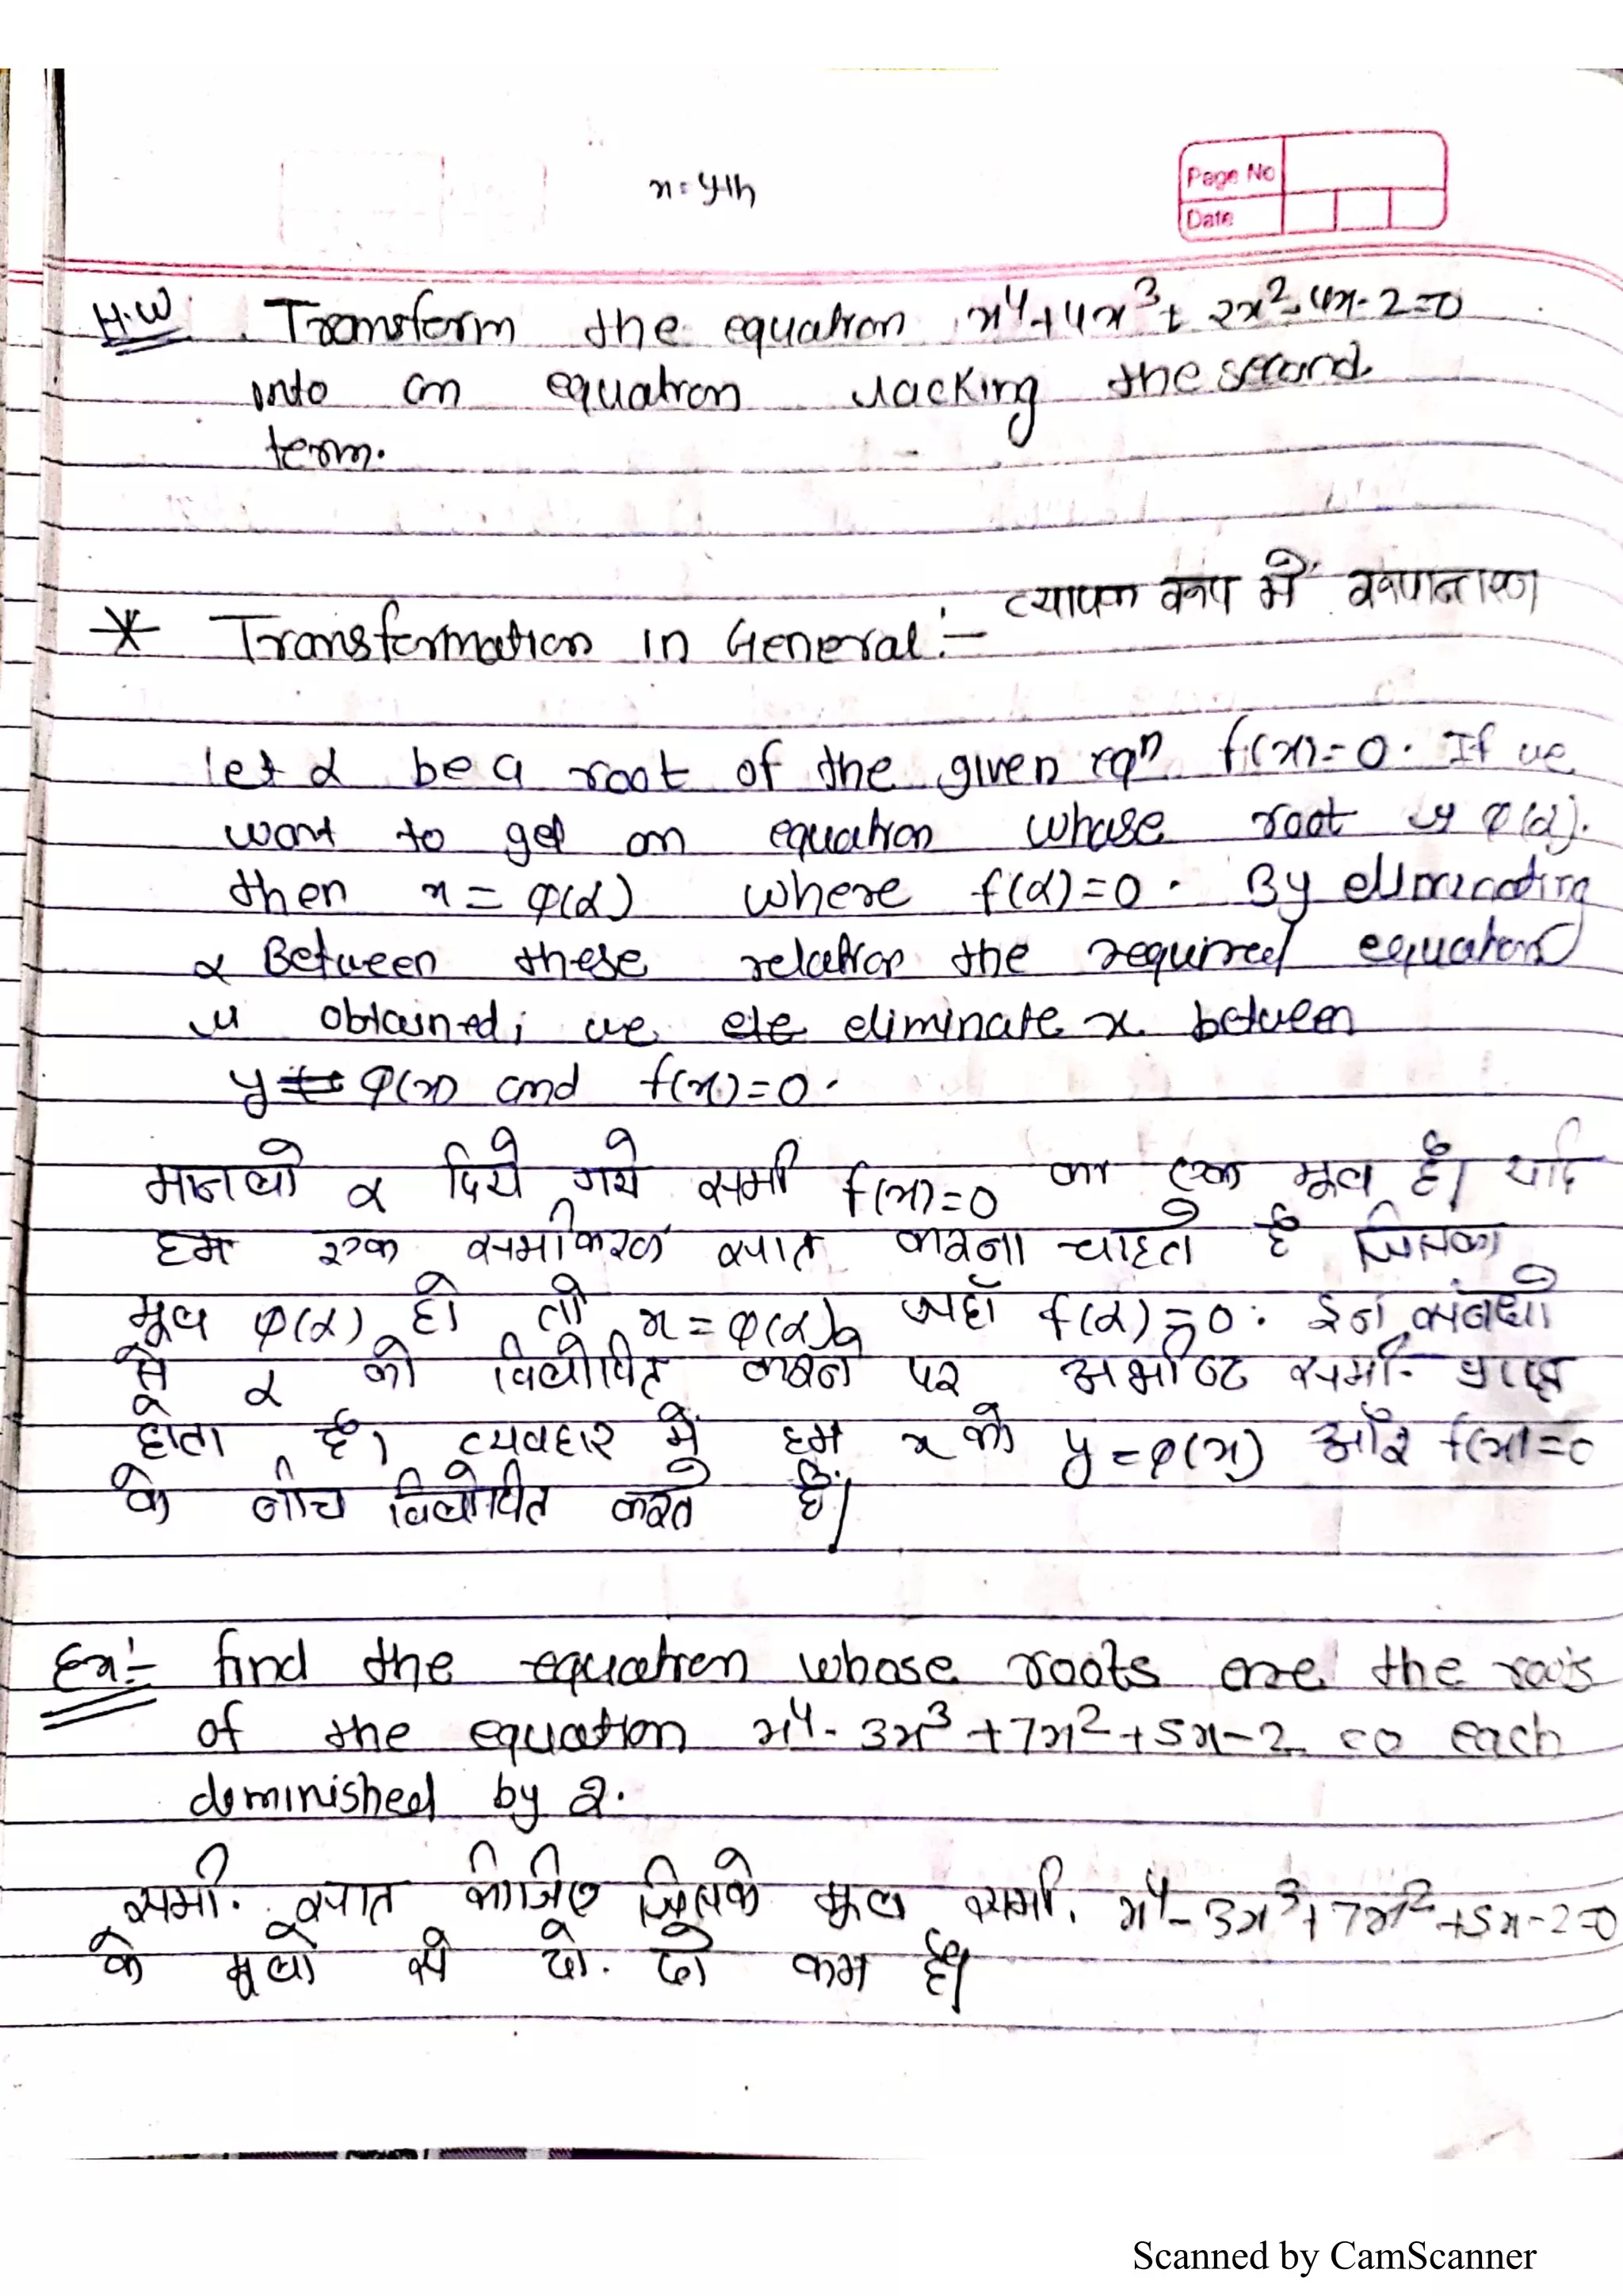 x = y+h
Page No
Date
H.W. Transform the equation x⁴+4x³+2x²-4x-2=0
into an equation lacking the second
term.
व्यापक रूप में रूपान्तरण
* Transformation in General:-
let α be a root of the given eqⁿ f(x)=0. If we
want to get an equation whose root is φ(α).
then x = φ(α) where f(α)=0. By eliminating
α Between these relation the required equation
is obtained; we ele eliminate x between
y = φ(x) and f(x)=0.
मानलो α दिये गये समी f(x)=0 का एक मूल है। यदि
हम एक समीकरण ज्ञात करना चाहते है जिसका
मूल φ(α) हो तो x = φ(α), जहाँ f(α)=0. इन संबंधो
से α को विलोपित करने पर अभीष्ट समी. प्राप्त
होता है। व्यवहार में हम x को y = φ(x) और f(x)=0
के बीच विलोपित करते हैं।
Ex:- find the equation whose roots are the roots
of the equation x⁴-3x³+7x²+5x-2=0 each
deminished by 2.
समी. ज्ञात कीजिए जिसके मूल समी. x⁴-3x³+7x²+5x-2=0
के मूलो से दो. दो कम है।
Scanned by CamScanner